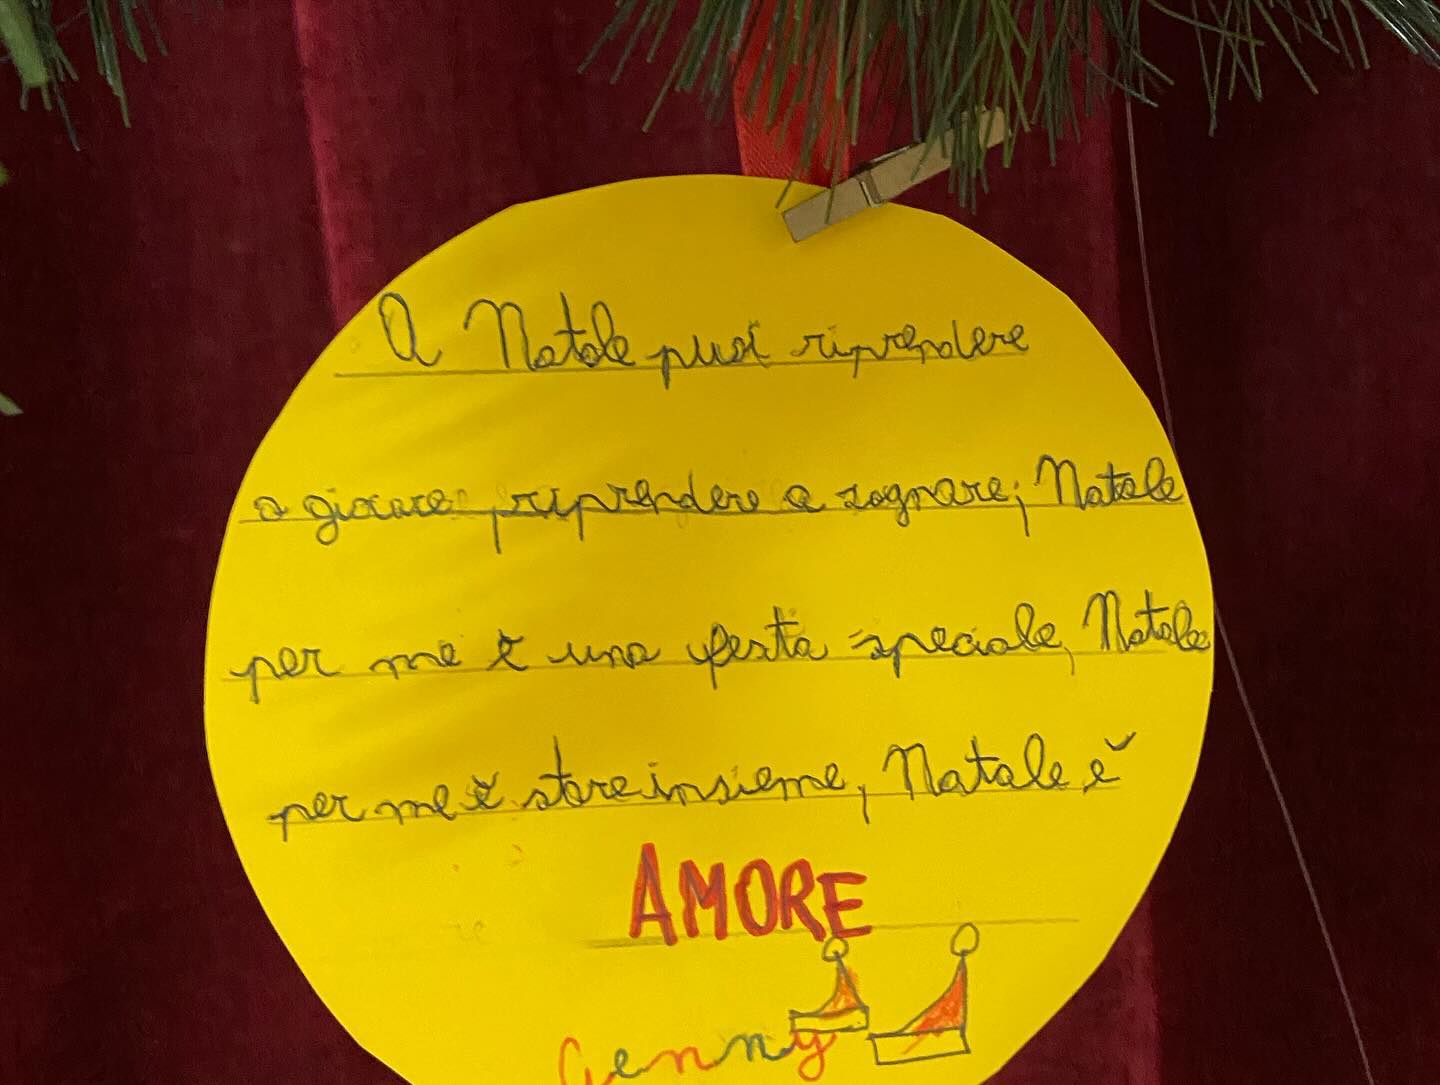 A Natale puoi riprendere
a giocare, riprendere a sognare; Natale
per me è una festa speciale, Natale
per me è stare insieme, Natale è
AMORE
Genny